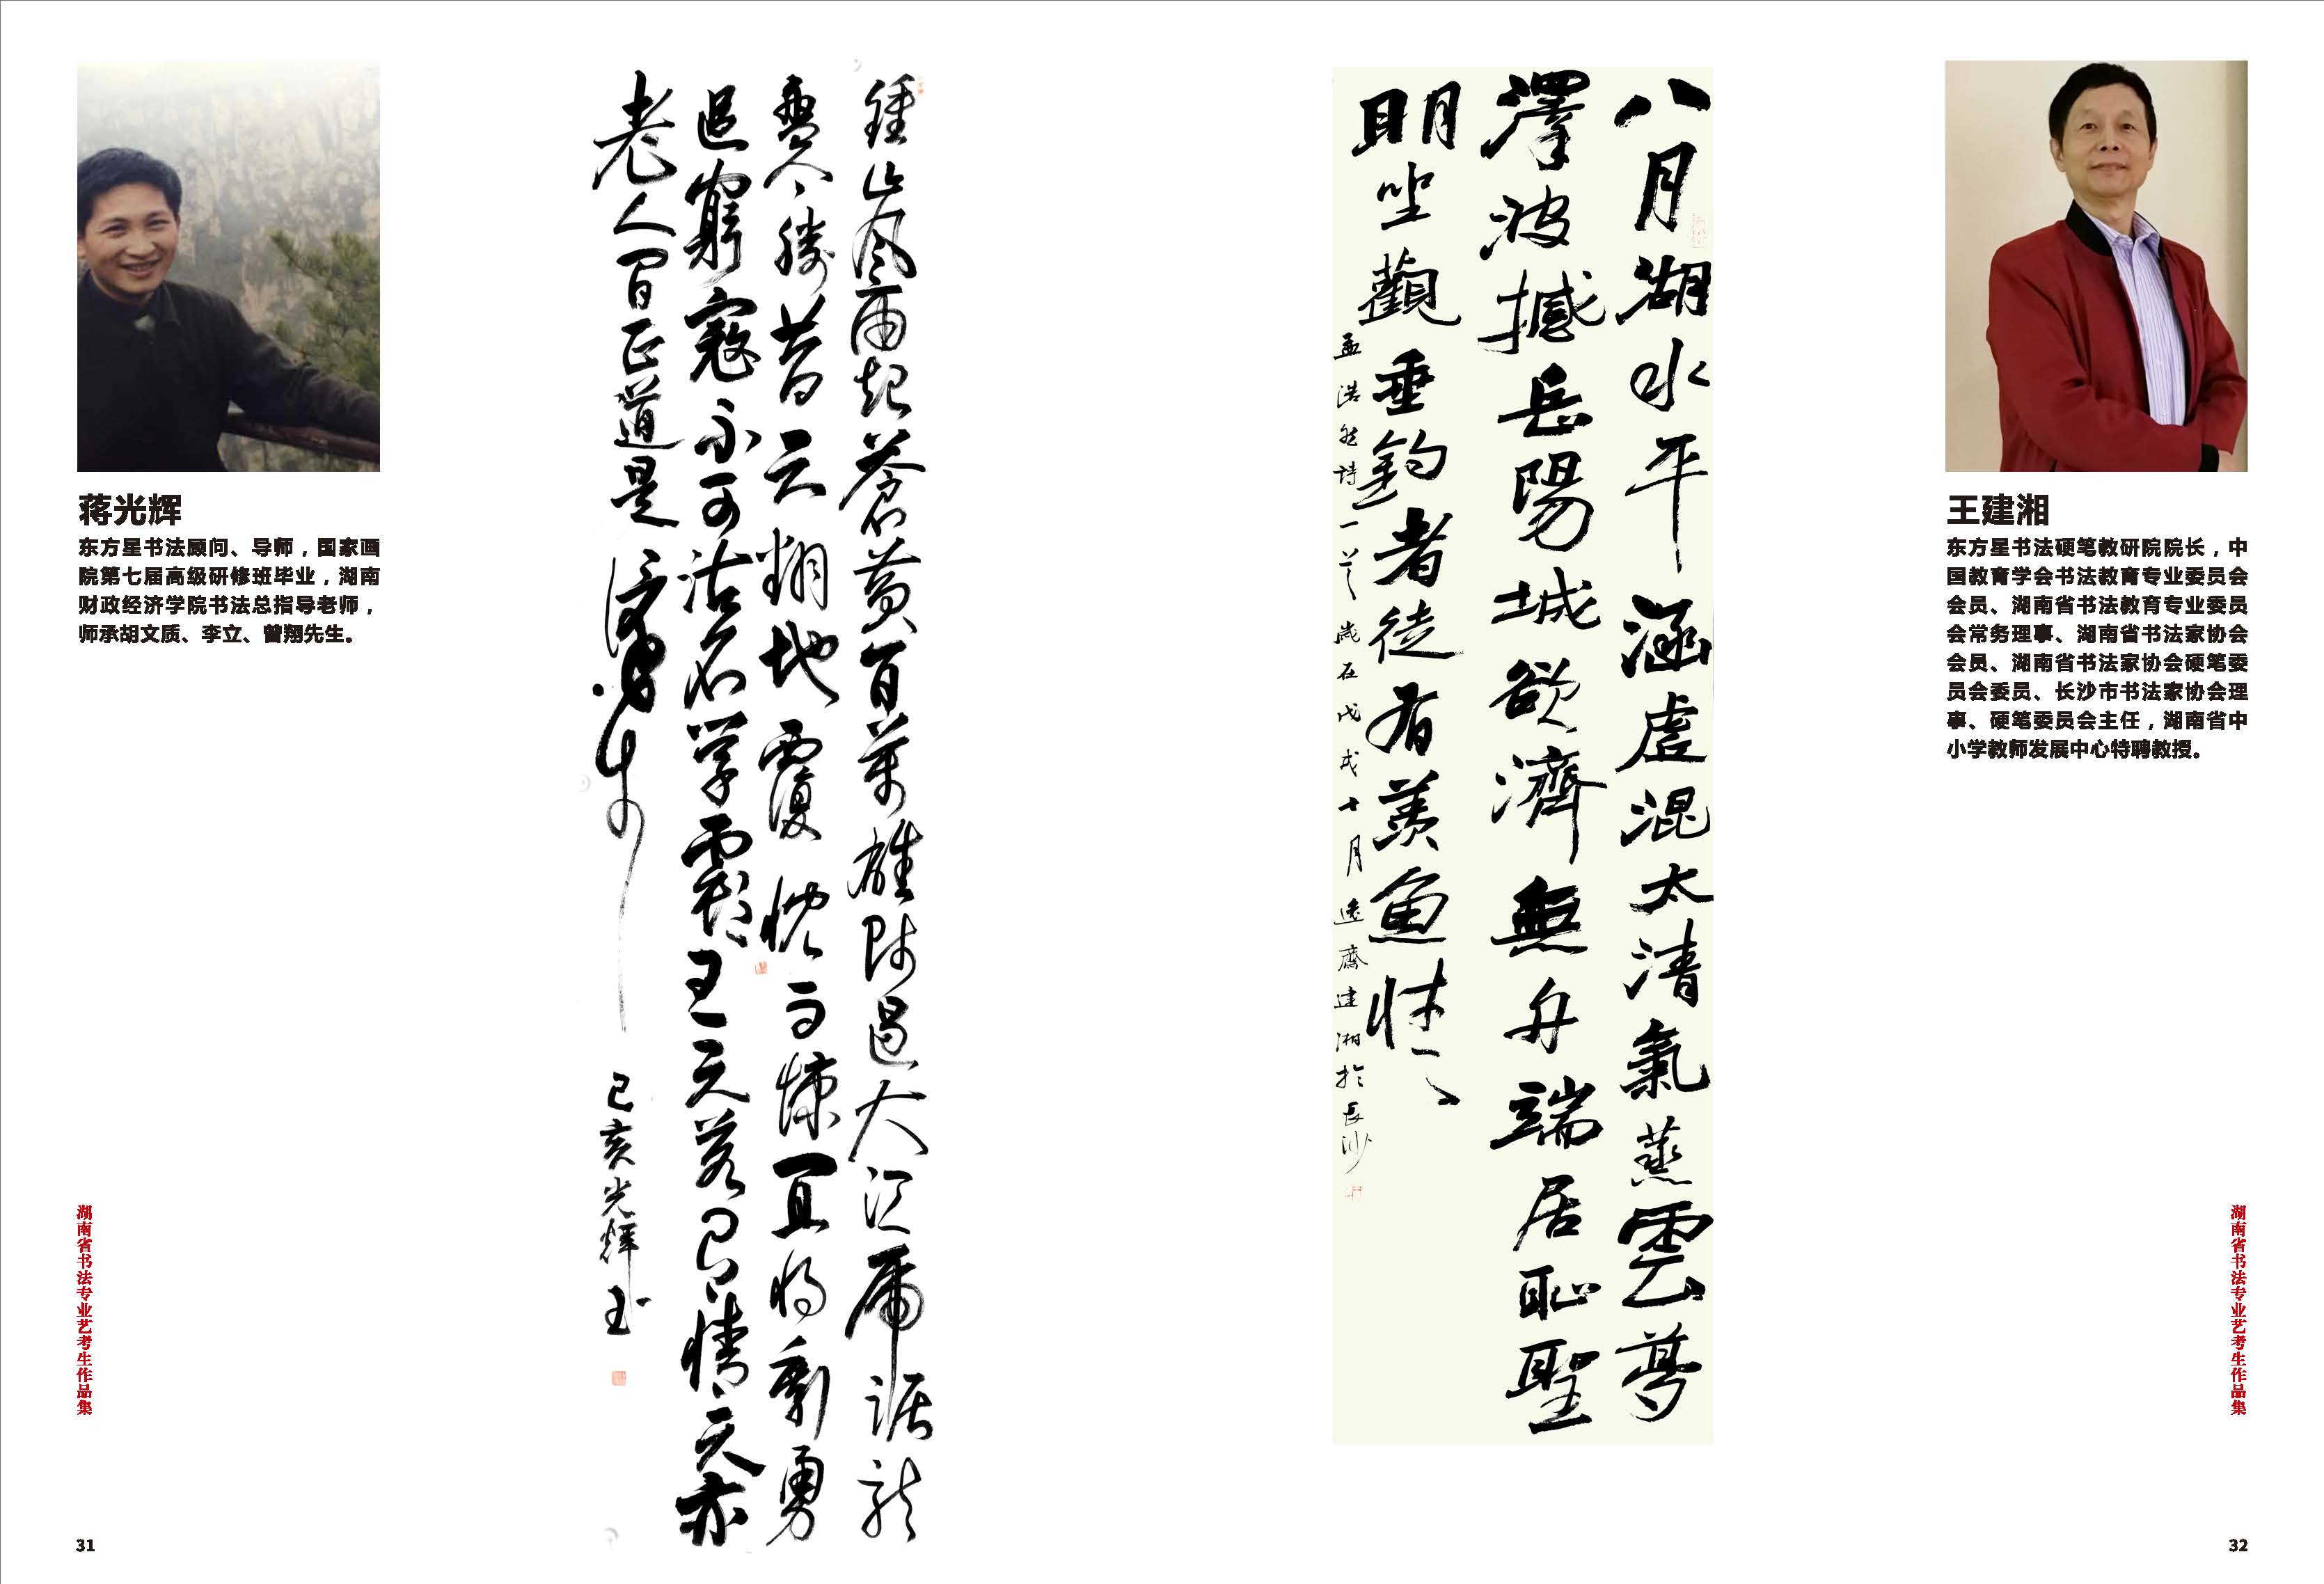 蒋光辉
东方星书法顾问、导师，国家画
院第七届高级研修班毕业，湖南
财政经济学院书法总指导老师，
师承胡文质、李立、曾翔先生。
鍾山风雨起蒼黄百萬雄师過大江虎踞龙
盘今勝昔天翻地覆慨而慷宜将剩勇
追窮寇不可沽名学霸王天若有情天亦
老人间正道是滄桑
己亥光輝书
湖南省书法专业艺考生作品集
31
八月湖水平涵虚混太清氣蒸雲夢
澤波撼岳陽城欲濟無舟端居恥聖
明坐觀垂釣者徒有羨魚情
孟浩然詩一首歲在戊戌十月逸齋建湘於長沙
王建湘
东方星书法硬笔教研院院长，中
国教育学会书法教育专业委员会
会员、湖南省书法教育专业委员
会常务理事、湖南省书法家协会
会员、湖南省书法家协会硬笔委
员会委员、长沙市书法家协会理
事、硬笔委员会主任，湖南省中
小学教师发展中心特聘教授。
湖南省书法专业艺考生作品集
32